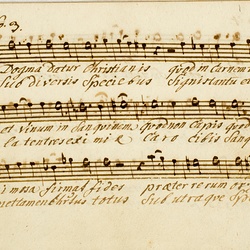 No. 3.
Dogma datur Christianis quod in Carnem
Sub diversis Speciebus Signis tantu
et vinum in Sanguinem quod non capis quod
Caro cibus Sang
mosa firmat fides præter rerum or
manet tamen Christus totus Sub utraque Spe